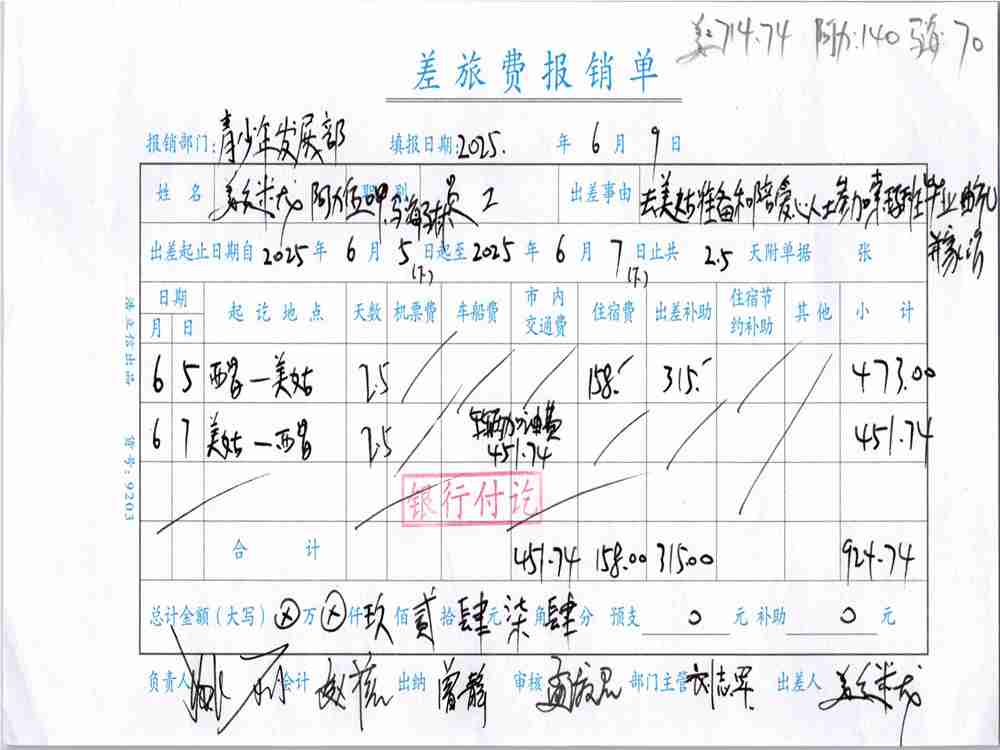 714.74 140 70
差旅费报销单
报销部门:青少年发展部 填报日期:2025. 年 6 月 9 日
姓名 职别 员工 出差事由 去美姑准备和陪爱心人士参加 毕业典礼
出差起止日期自 2025 年 6 月 5 日起至 2025 年 6 月 7 日止共 2.5 天附单据 张
(下) (下)
日期 起讫地点 天数 机票费 车船费 市内交通费 住宿费 出差补助 住宿节约补助 其他 小计
月 日
6 5 西昌—美姑 2.5 158.- 315.- 473.00
6 7 美姑—西昌 2.5 车辆加油费 451.74 451.74
银行付讫
合计 451.74 158.00 315.00 924.74
总计金额(大写) ⊗万 ⊗仟 玖佰 贰拾 肆元 柒角 肆分 预支 0 元 补助 0 元
负责人 会计 出纳 曾静 审核 部门主管 刘志军 出差人
货号:9203